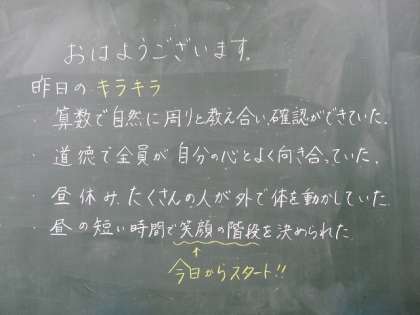 おはようございます。
昨日のキラキラ
・算数で自然に周りと教え合い、確認ができていた。
・道徳で全員が自分の心とよく向き合っていた。
・昼休み、たくさんの人が外で体を動かしていた。
・昼の短い時間で笑顔の階段を決められた
↑
今日からスタート!!